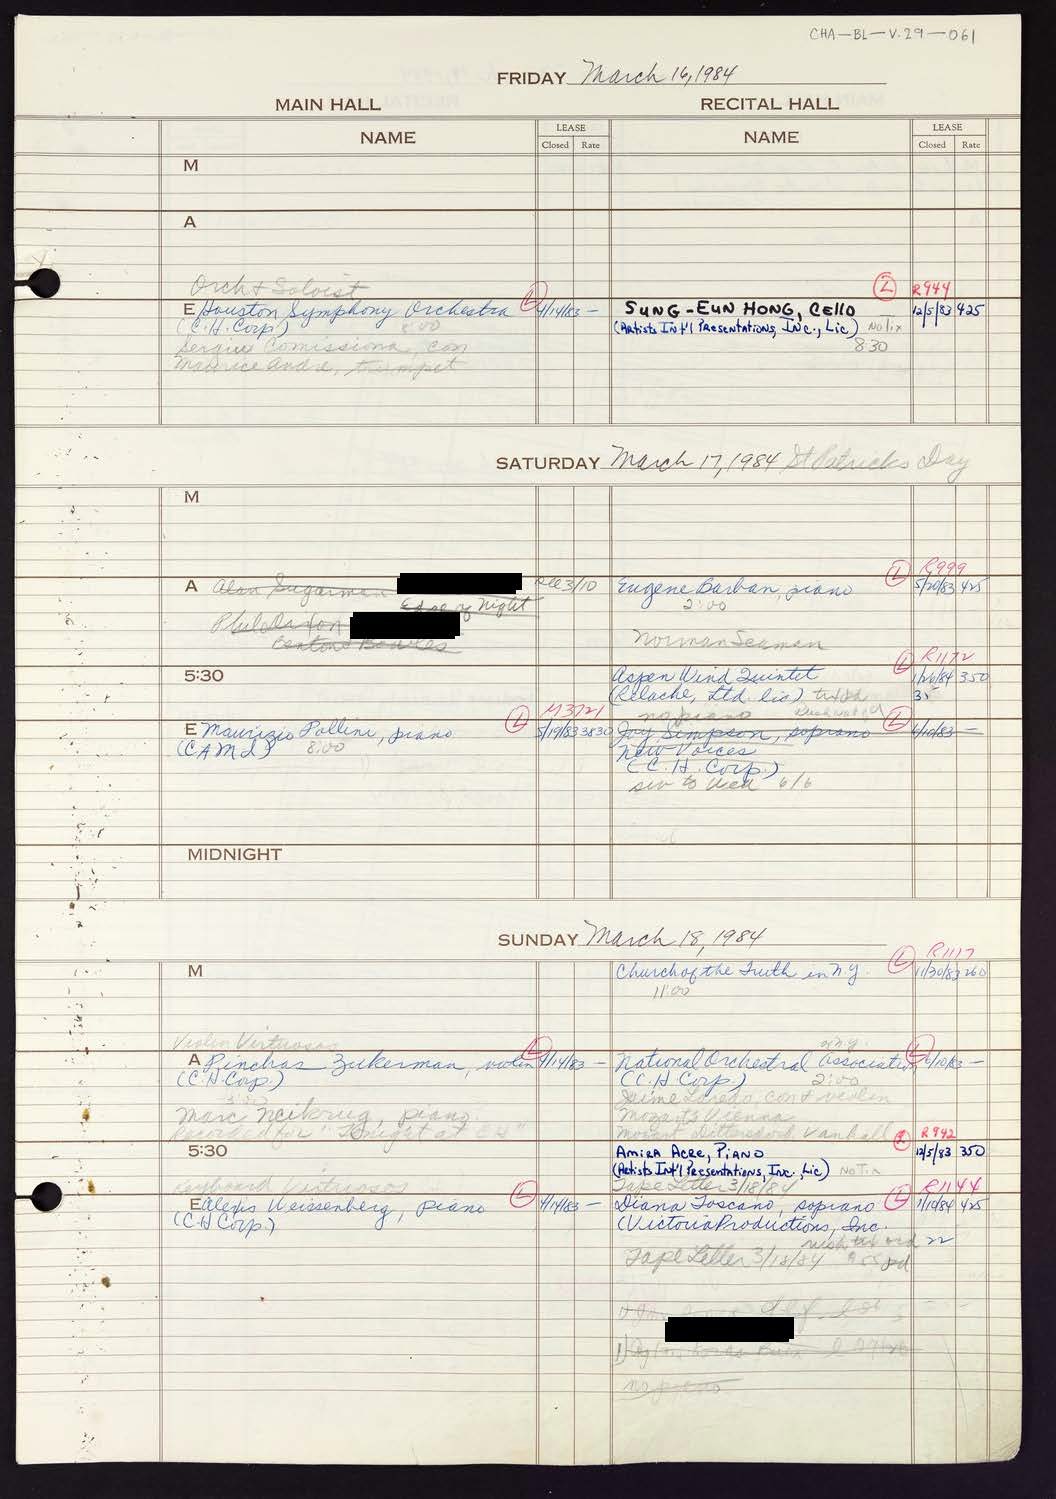 CHA-BL-V.29-061
FRIDAY March 16, 1984
MAIN HALL RECITAL HALL
NAME LEASE NAME LEASE
Closed Rate Closed Rate
M
A
Orch & Soloist (2) R944
E Houston Symphony Orchestra (L) 4/14/83 — SUNG-EUN HONG, CELLO 12/5/83 425
(C.H. Corp.) 8:00 (Artists Int'l Presentations, Inc., Lic) No Tix
Sergiu Comissiona, con 8:30
Maurice Andre, trumpet
SATURDAY March 17, 1984 St Patricks Day
M
(L) R999
A Alan Sugarman rel 3/10 Eugene Barban, piano 5/20/83 425
Edge of Night 2:00
Phil Norman Seaman
Benton & Bowles (L) R1172
5:30 Aspen Wind Quintet 1/26/84 350
(Relache, Ltd. lic) 35
M3721 no piano
E Maurizio Pollini, piano (L) 5/19/83 3830 Joy Simpson, soprano (L) 4/10/83 —
(CAMI) 8:00 New Voices
(C.H. Corp.)
to Wed 6/6
MIDNIGHT
SUNDAY March 18, 1984
(L) R1117
M Church of the Truth in N.Y. 11/30/83 260
11:00
Violin Virtuosos of N.Y.
A Pinchas Zukerman, violin (L) 4/14/83 — National Orchestral Association (L) —
(C.H. Corp.) (C.H. Corp.) 2:00
3:00 Jaime Laredo, con & violin
Marc Neikrug, piano Mozart's Vienna
Recorded for "Tonight at CH" Mozart, Dittersdorf, Vanhall
R942
5:30 AMIRA ACRE, PIANO 12/5/83 350
(Artists Int'l Presentations, Inc. Lic) No Tix
Keyboard Virtuosos Tape Letter 3/18/84 R1144
E Alexis Weissenberg, piano (L) 4/14/83 — Diana Toscano, soprano (L) 1/10/84 425
(C H Corp.) (Victoria Productions, Inc.
22
Tape Letter 3/18/84
no piano